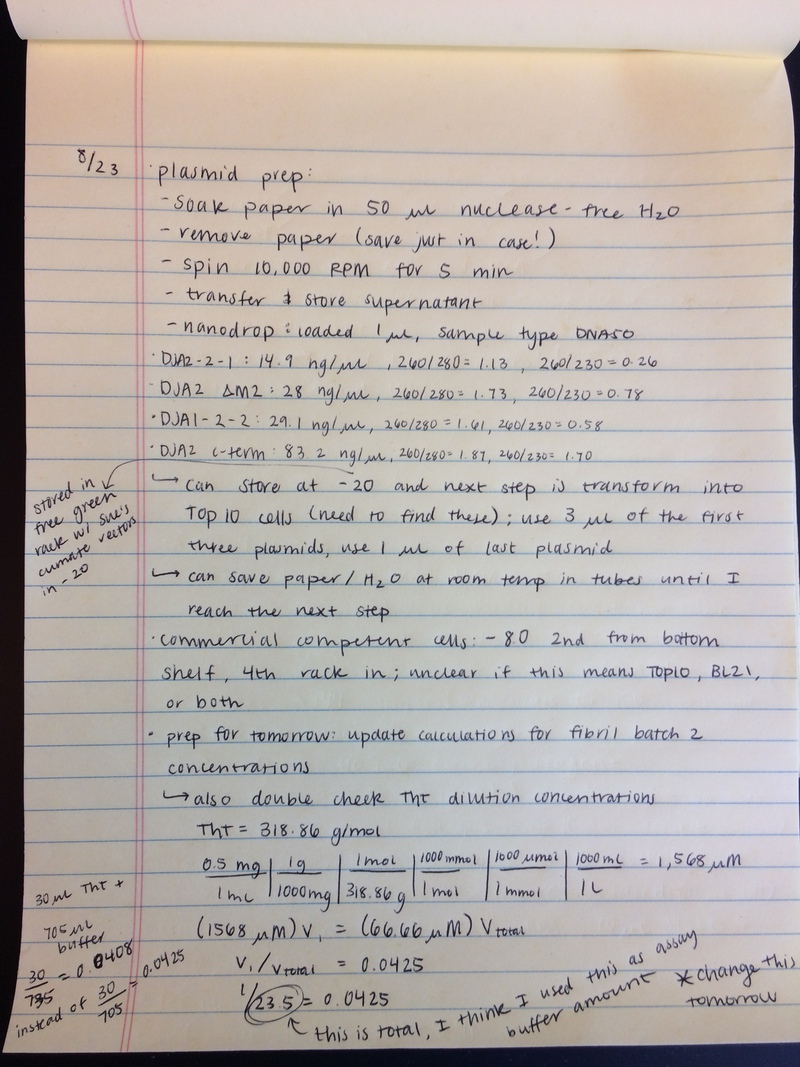 8/23
· plasmid prep:
- soak paper in 50 μl nuclease-free H2O
- remove paper (save just in case!)
- spin 10,000 RPM for 5 min
- transfer & store supernatant
- nanodrop: loaded 1 μl, sample type DNA50
· DJA2-2-1: 14.9 ng/μl, 260/280 = 1.13, 260/230 = 0.26
· DJA2 ΔM2: 28 ng/μl, 260/280 = 1.73, 260/230 = 0.78
· DJA1-2-2: 29.1 ng/μl, 260/280 = 1.61, 260/230 = 0.58
· DJA2 c-term: 83.2 ng/μl, 260/280 = 1.87, 260/230 = 1.70
↳ can store at -20 and next step is transform into
Top 10 cells (need to find these); use 3 μl of the first
three plasmids, use 1 μl of last plasmid
↳ can save paper/H2O at room temp in tubes until I
reach the next step
stored in
free green
rack w/ Sue's
cumate vectors
in -20
· commercial competent cells: -80 2nd from bottom
shelf, 4th rack in; unclear if this means Top10, BL21,
or both
· prep for tomorrow: update calculations for fibril batch 2
concentrations
↳ also double check ThT dilution concentrations
ThT = 318.86 g/mol
0.5 mg | 1g | 1mol | 1000 mmol | 1000 μmol | 1000 mL = 1,568 μM
1 mL | 1000mg | 318.86 g | 1 mol | 1 mmol | 1L
(1568 μM) V1 = (66.66 μM) Vtotal
V1/Vtotal = 0.0425
1/23.5 = 0.0425
↖ this is total, I think I used this as assay
buffer amount
* change this
tomorrow
30 μl ThT +
705 μl
buffer
30/735 = 0.0408
instead of 30/705 = 0.0425